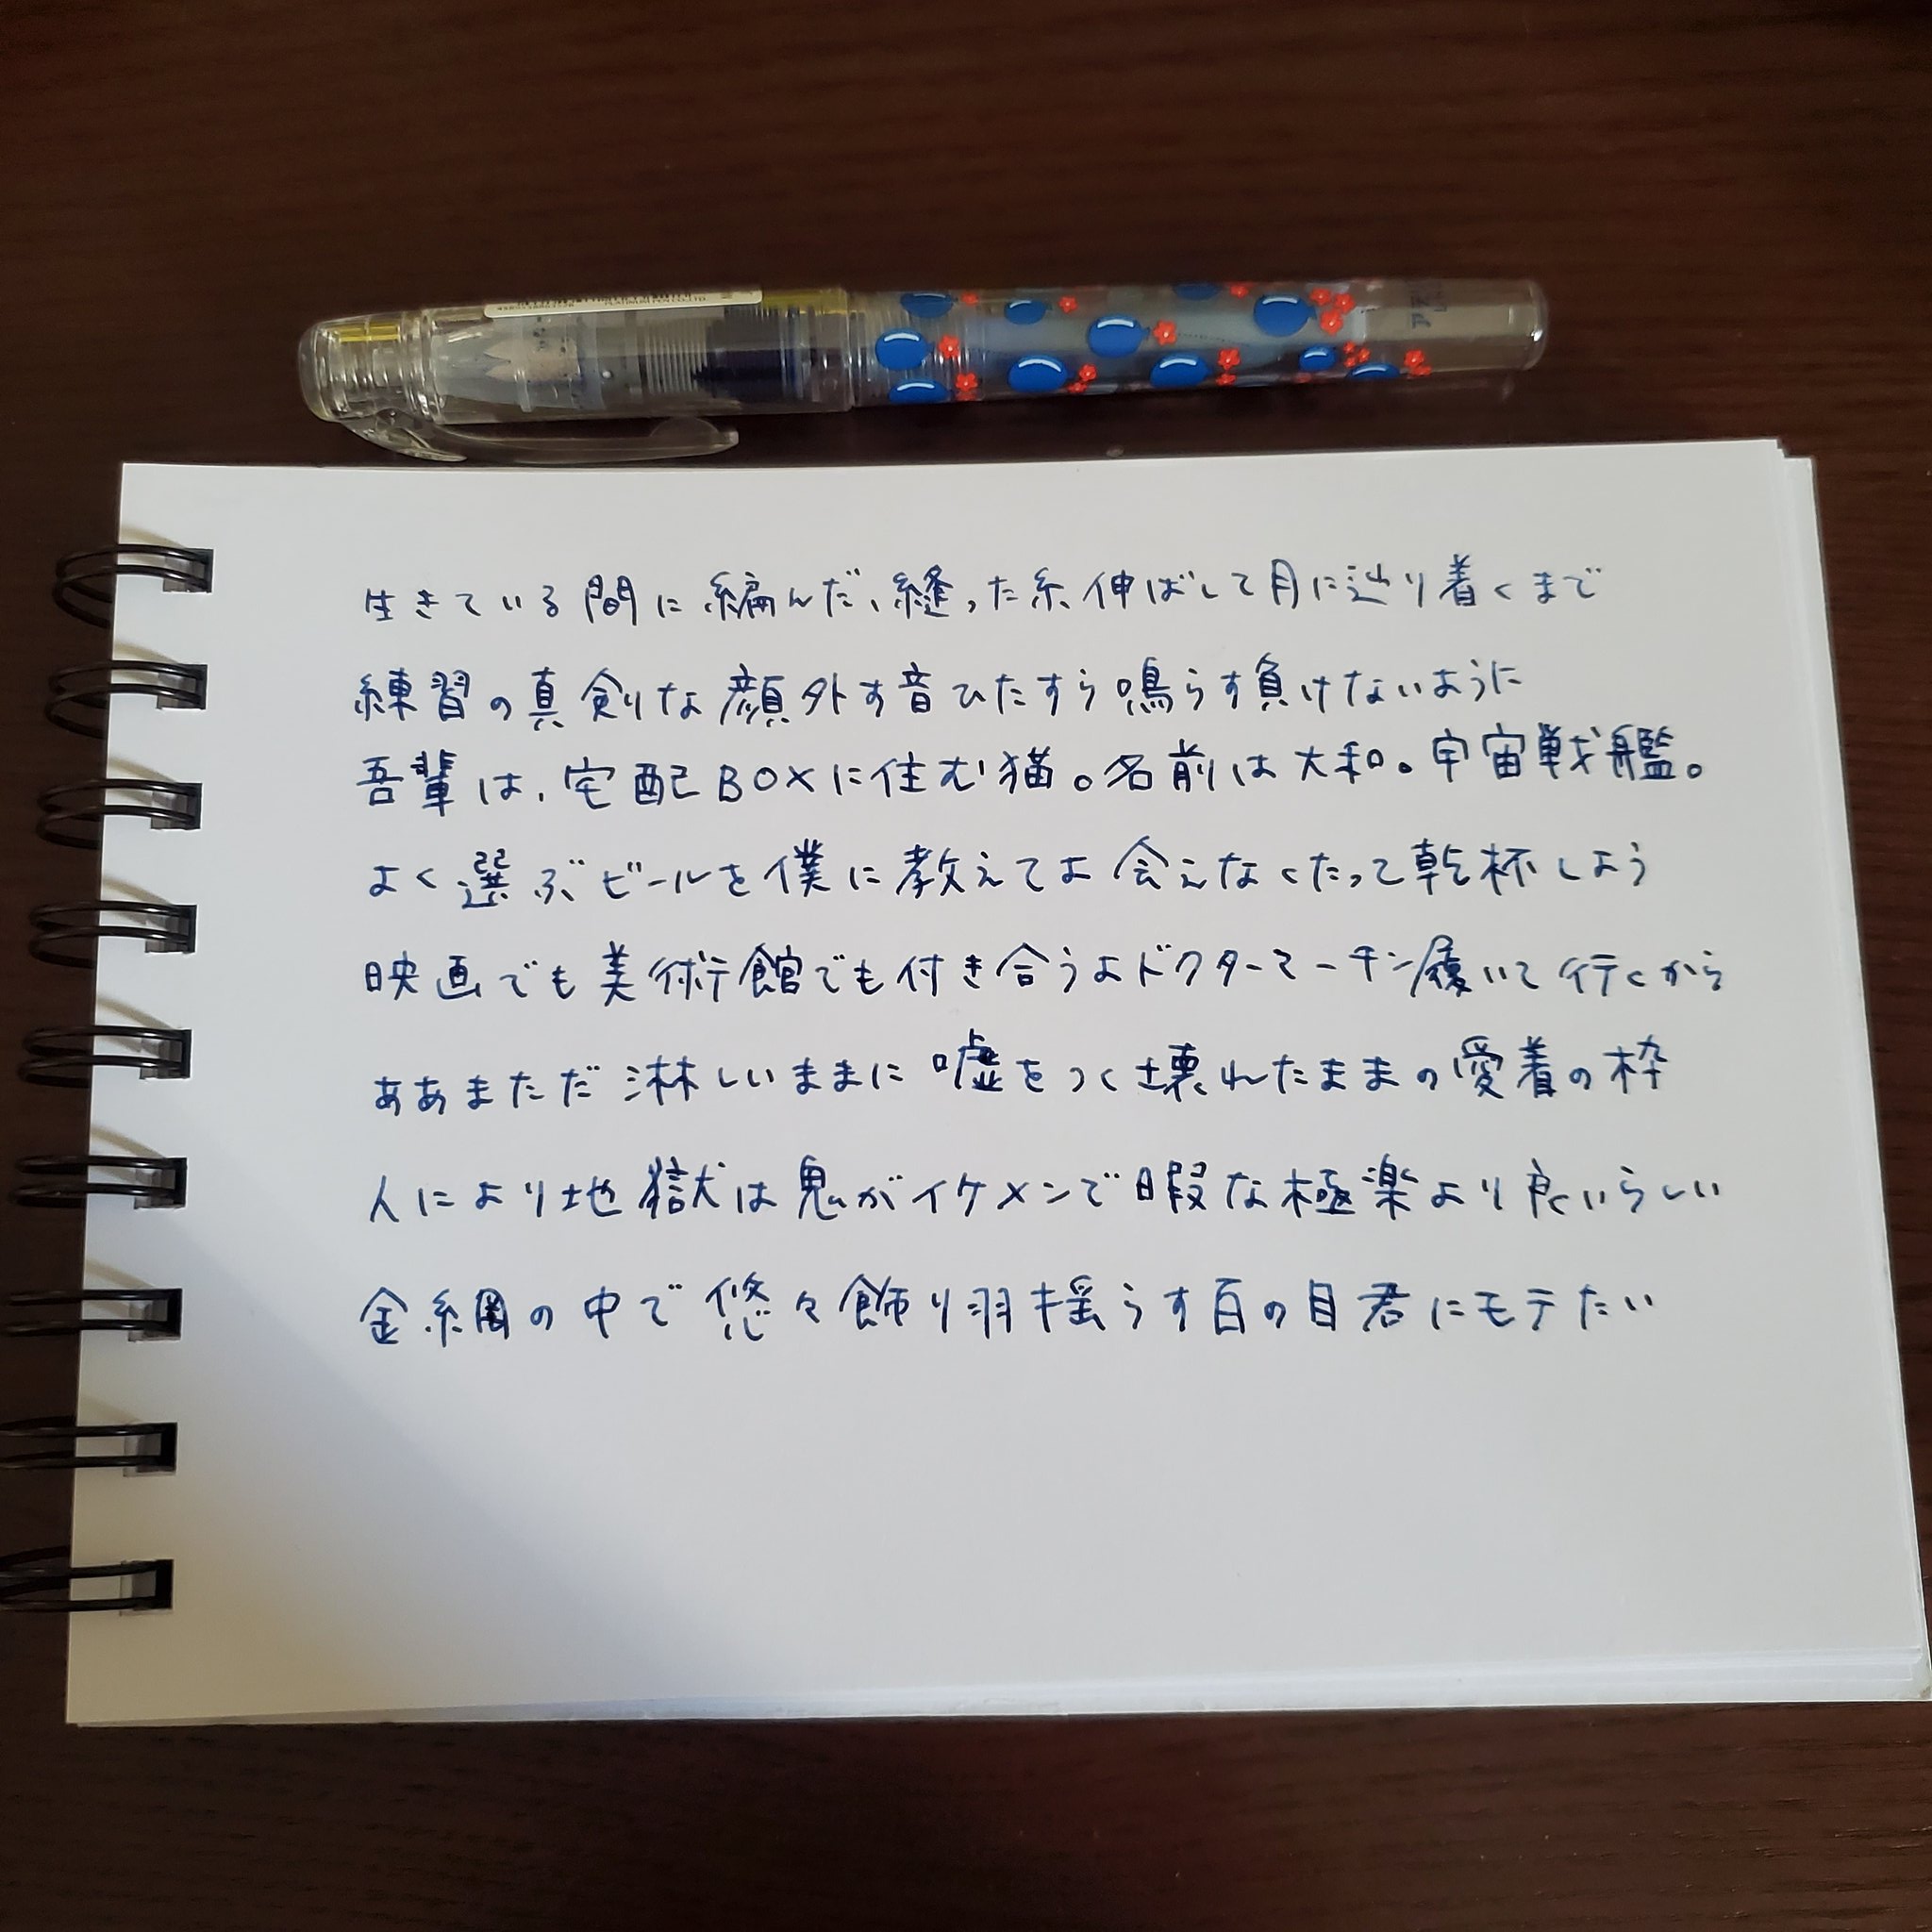 生きている間に編んだ、縫った糸伸ばして月に辿り着くまで
練習の真剣な顔外す音ひたすら鳴らす負けないように
吾輩は、宅配BOXに住む猫。名前は大和。宇宙戦艦。
よく選ぶビールを僕に教えてよ会えなくたって乾杯しよう
映画でも美術館でも付き合うよドクターマーチン履いて行くから
ああまただ淋しいままに嘘をつく壊れたままの愛着の枠
人により地獄は鬼がイケメンで暇な極楽より良いらしい
金網の中で悠々飾り羽揺らす百の目君にモテたい